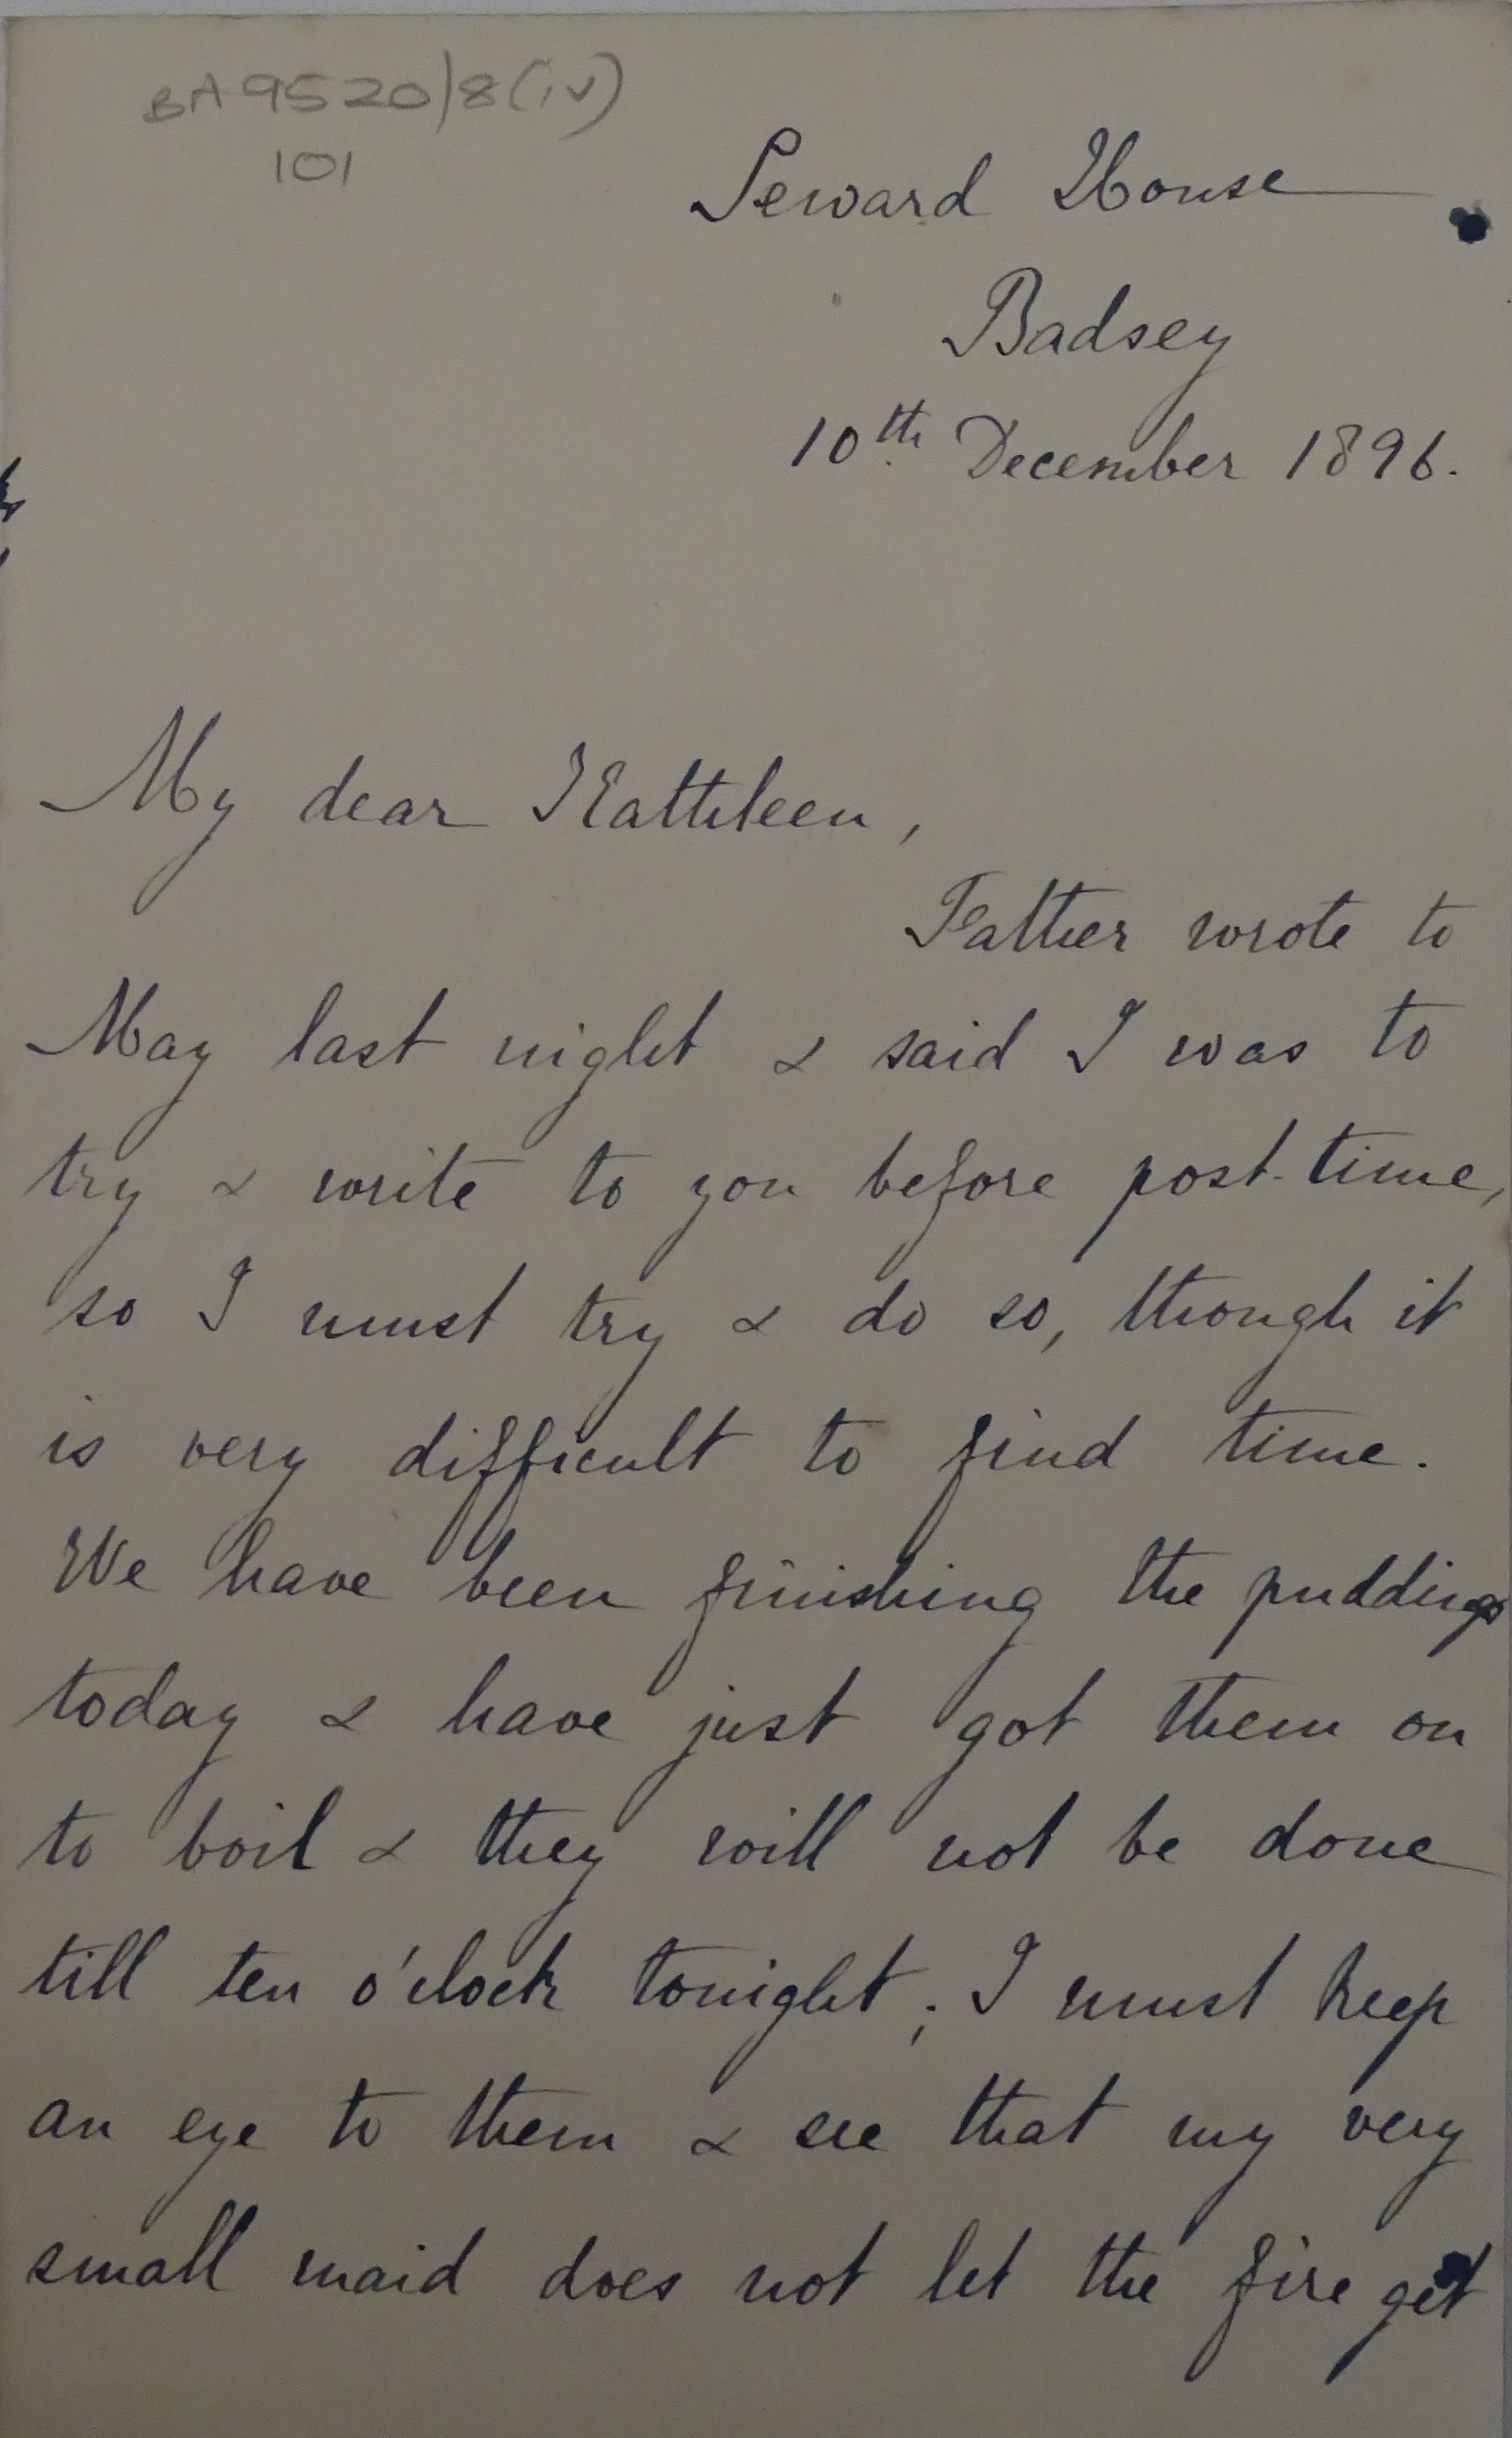 BA 9520/8(iv)
101
Seward House
Badsey
10th December 1896.
My dear Kathleen,
Father wrote to
May last night & said I was to
try & write to you before post-time,
so I must try & do so, though it
is very difficult to find time.
We have been finishing the puddings
today & have just got them on
to boil & they will not be done
till ten o'clock tonight; I must keep
an eye to them & see that my very
small maid does not let the fire get